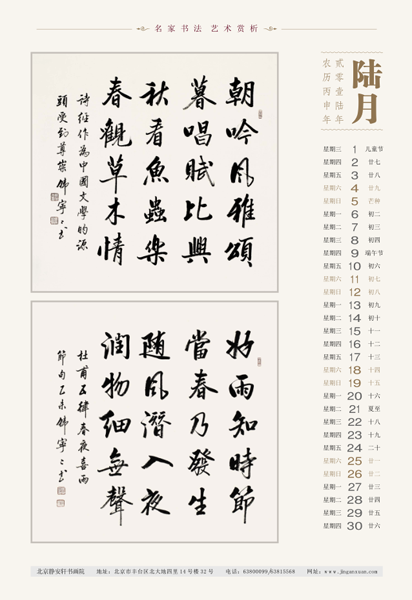 名家书法 艺术赏析
陆月
贰零壹陆年
农历丙申年
朝吟风雅頌
暮唱賦比興
秋看魚蟲樂
春觀草木情
詩經作為中國文學的源
頭受到尊崇
好雨知時節
當春乃發生
随风潛入夜
潤物细無聲
杜甫五律春夜喜雨
節句乙未
星期三 1 儿童节
星期四 2 廿七
星期五 3 廿八
星期六 4 廿九
星期日 5 芒种
星期一 6 初二
星期二 7 初三
星期三 8 初四
星期四 9 端午节
星期五 10 初六
星期六 11 初七
星期日 12 初八
星期一 13 初九
星期二 14 初十
星期三 15 十一
星期四 16 十二
星期五 17 十三
星期六 18 十四
星期日 19 十五
星期一 20 十六
星期二 21 夏至
星期三 22 十八
星期四 23 十九
星期五 24 二十
星期六 25 廿一
星期日 26 廿二
星期一 27 廿三
星期二 28 廿四
星期三 29 廿五
星期四 30 廿六
北京静安轩书画院 地址：北京市丰台区北大地四里14号楼32号 电话：63800099/63815568 网址：www.jinganxuan.com